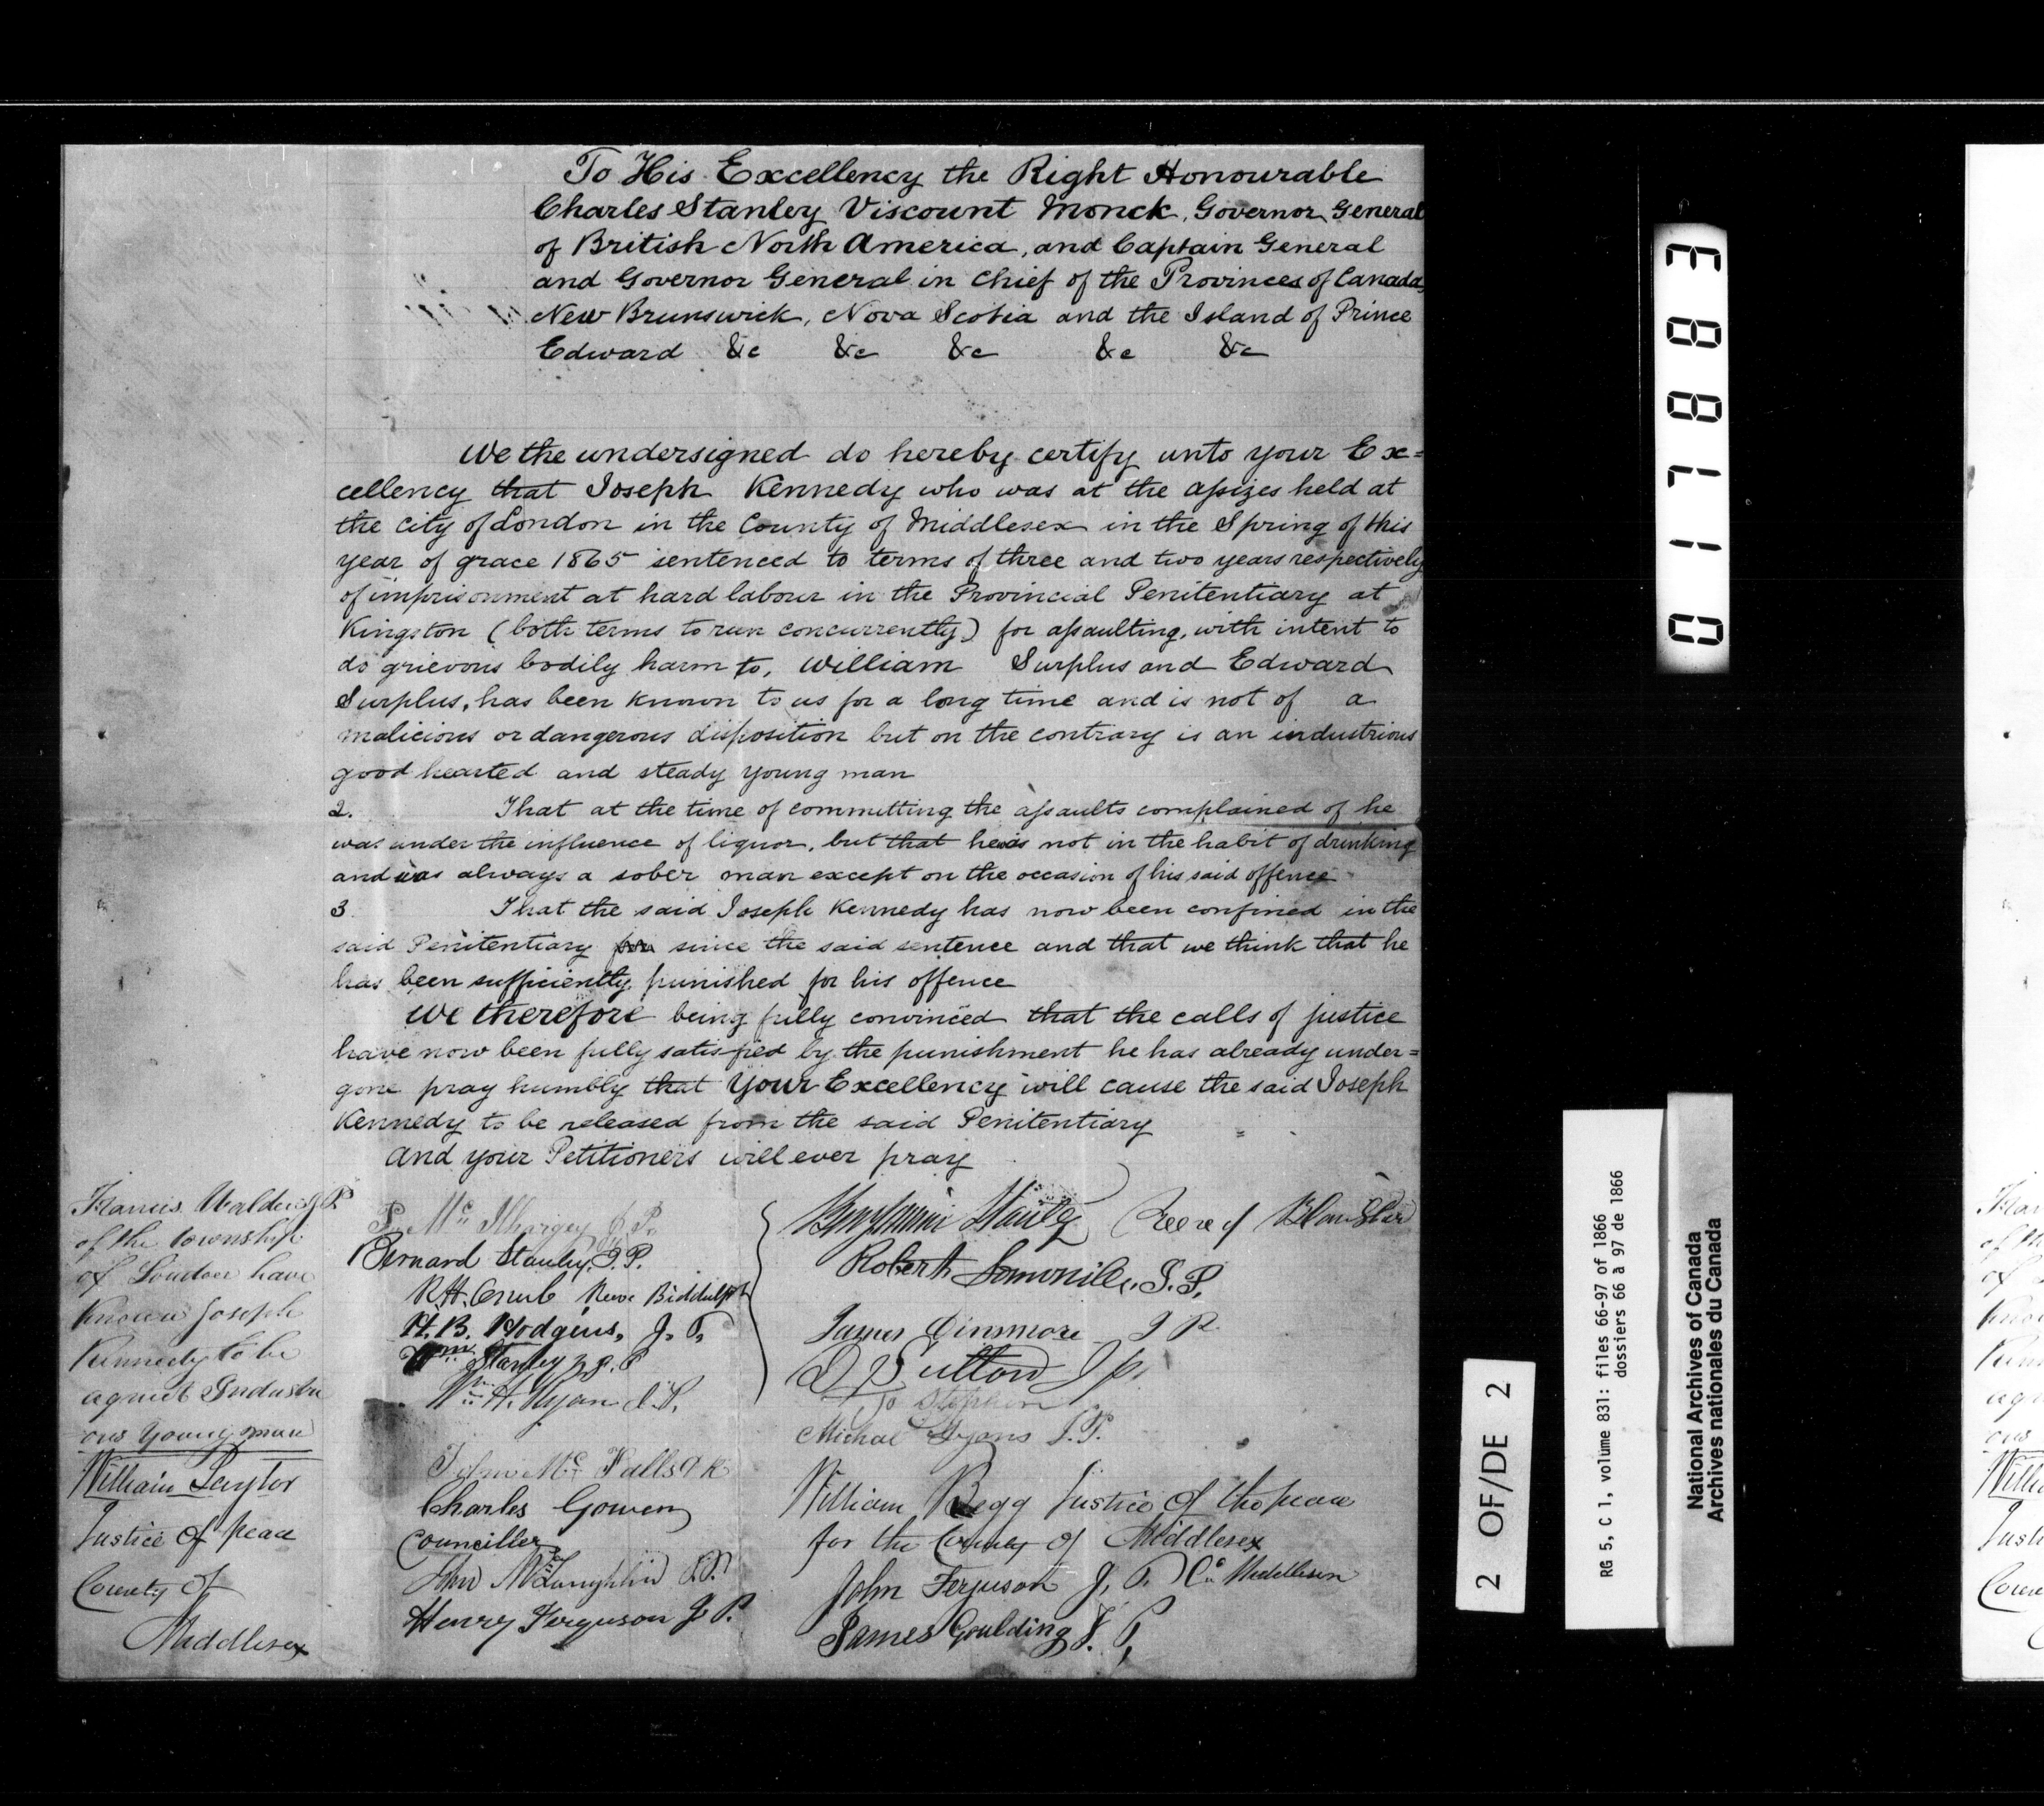 To His Excellency the Right Honourable
Charles Stanley Viscount Monck, Governor General
of British North America, and Captain General
and Governor General in Chief of the Provinces of Canada,
New Brunswick, Nova Scotia and the Island of Prince
Edward &c &c &c &c &c
We the undersigned do hereby certify unto your Ex=
cellency that Joseph Kennedy who was at the assizes held at
the city of London in the County of Middlesex in the Spring of this
year of grace 1865 sentenced to terms of three and two years respectively
of imprisonment at hard labour in the Provincial Penitentiary at
Kingston (both terms to run concurrently) for assaulting, with intent to
do grievous bodily harm to, William Surplus and Edward
Surplus, has been known to us for a long time and is not of a
malicious or dangerous disposition but on the contrary is an industrious
good hearted and steady young man
2. That at the time of committing the assaults complained of he
was under the influence of liquor, but that he is not in the habit of drinking
and was always a sober man except on the occasion of his said offence
3 That the said Joseph Kennedy has now been confined in the
said Penitentiary since the said sentence and that we think that he
has been sufficiently punished for his offence
We therefore being fully convinced that the calls of justice
have now been fully satisfied by the punishment he has already under=
gone pray humbly that Your Excellency will cause the said Joseph
Kennedy to be released from the said Penitentiary
And your Petitioners will ever pray
Francis Walden J P
of the township
of London have
known Joseph
Kennedy to be
a quiet Industri
ous young man
William Taylor
Justice of peace
County of
Middlesex
Mc Ilhargey J. P.
Bernard Stanley J. P.
R. H. Reeve Biddulph
H. B. Hodgins, J. P.
Wm Stanley J. P
Wm H. Ryan J. P.
John Mc Falls
Charles Gowen
Councillor
John McLaughlin J. P.
Henry Ferguson J. P.
Benjamin Stanley Reeve of
Robert Somville, J. P.
James Dinsmore J P.
D Sutton J p.
To Stephen
Michal Lyons J. P.
William Begg Justice of the peace
for the County of Middlesex
John Ferguson J. P. Co Middlesex
James Goulding J. P.
2 OF/DE 2
017883
RG 5, C 1, volume 831: files 66-97 of 1866
dossiers 66 à 97 de 1866
National Archives of Canada
Archives nationales du Canada